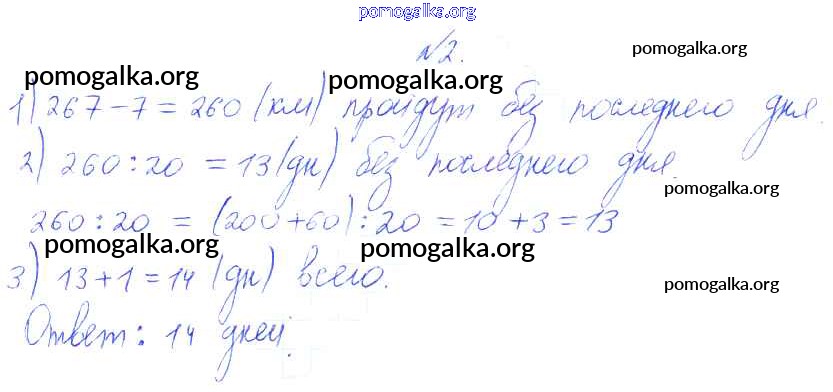 pomogalka.org
№2.
pomogalka.org
pomogalka.org
pomogalka.org
1) 267-7=260 (км) пройдут без последнего дня.
2) 260:20 =13(дн) без последнего дня.
pomogalka.org
260:20 = (200+60):20 =10+3=13
pomogalka.org
pomogalka.org
3) 13+1=14 (дн) всего.
pomogalka.org
Ответ: 14 дней.